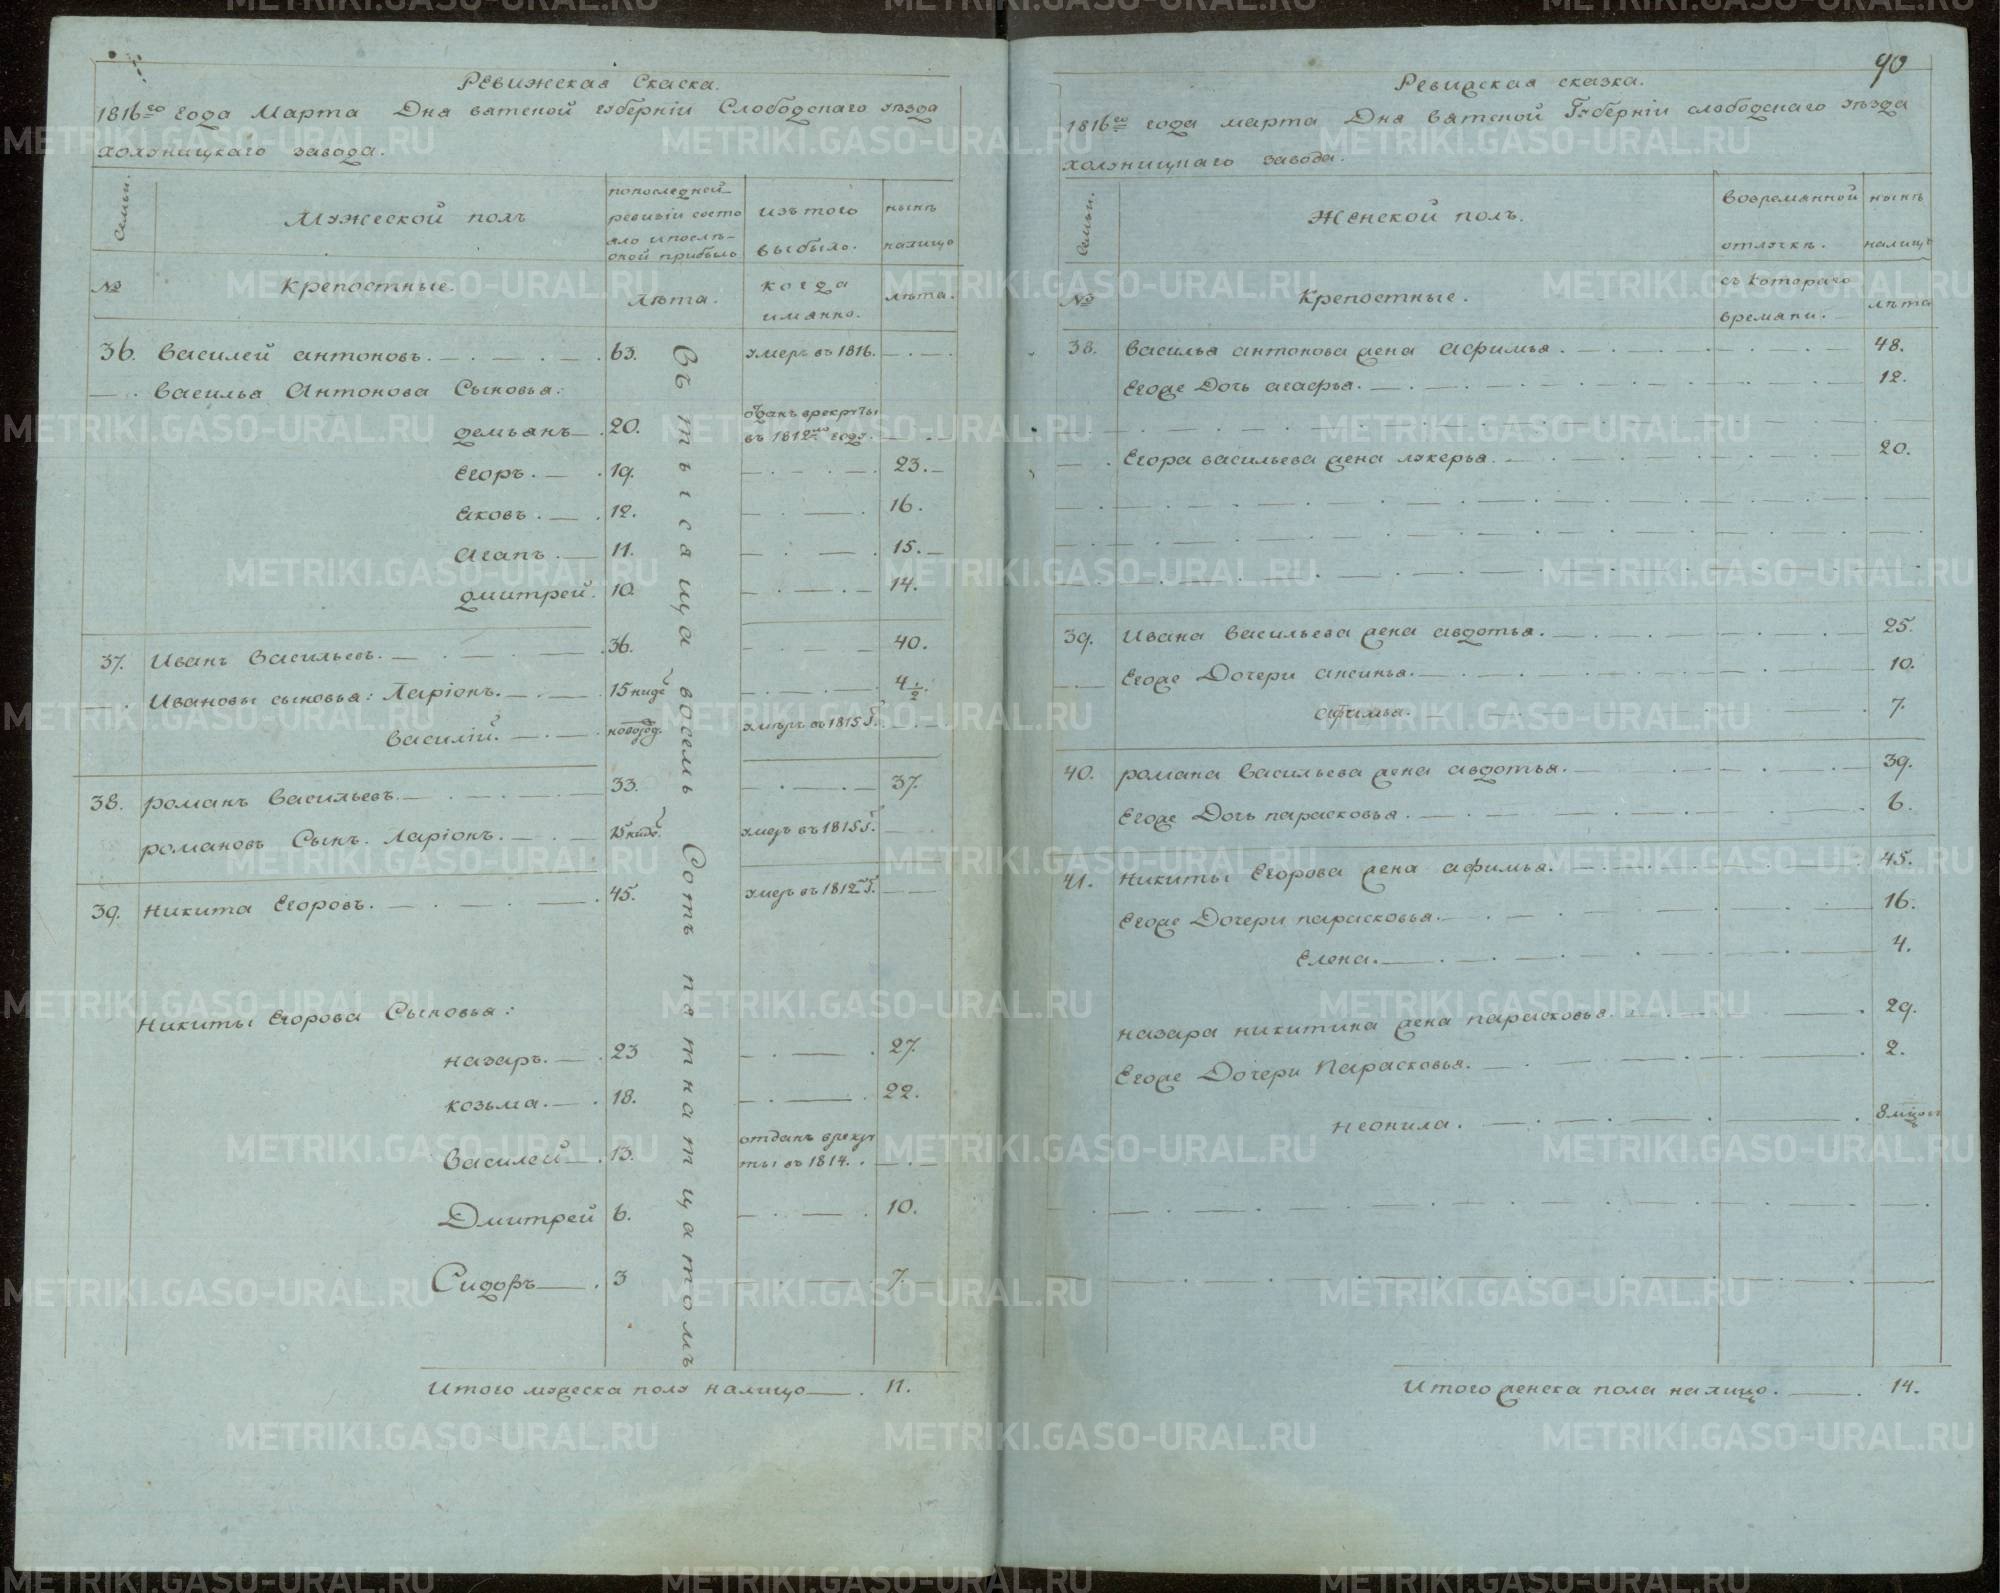 Ревижская Скаска.
1816го года Марта Дня вятской губернїи Слободскаго уѣзда
холуницкаго завода.
Семьи.
Мужеской полъ
попоследней
ревизїи состо
яло ипослѣ
оной прибыло
изътого
выбыло.
нынѣ
налицо
№
Крепостные.
лѣта.
когда
иманно.
лѣта.
36. Василей антоновъ. 63. умеръ въ 1816.
Василья Антонова Сыновья:
демьянъ 20. отданъ врекруты
въ 1812мъ году.
Егоръ. 19. 23.
Яковъ. 12. 16.
Агапъ. 11. 15.
дмитрей. 10. 14.
37. Иванъ Васильевъ. 36. 40.
Ивановы сыновья: Ларїонъ. 15 ниде 4 1/2.
Василїй. новород. умеръ въ 1815 г.
38. романъ Васильевъ. 33. 37.
романовъ Сынъ Ларїонъ. умеръ въ 1815 г.
39. Никита Егоровъ. 45. умеръ въ 1812 г.
Никиты Егорова Сыновья:
назаръ. 23 27.
козьма. 18. 22.
Василей 13. отданъ врекру
ты въ 1814.
Дмитрей 6. 10.
Сидоръ 3 7.
Въ тысяща восемь Сотъ петнатцатомъ
Итого мужеска полу налицо 11.
90
Ревизская сказка.
1816го года марта Дня Вятской Губернїи слободскаго уѣзда
холуницкаго завода.
Семьи.
Женской полъ.
вовременной
отлучкѣ.
нынѣ
налицо
№
Крепостные.
съ котораго
времани.
лѣта
38. Василья антонова жена Афимья. 48.
Егоже Дочь агафья. 12.
Егора васильева жена лукерья. 20.
39. Ивана Васильева жена авдотья. 25.
Егоже Дочери аксинья. 10.
афимья. 7.
40. романа Васильева жена авдотья. 39.
Егоже Дочь парасковья. 6.
41. Никиты Егорова жена афимья. 45.
Егоже Дочери парасковья. 16.
Елена. 4.
назара никитина жена парасковья. 29.
Егоже Дочери Парасковья. 2.
неонила. 8
Итого женска пола налицо. 14.